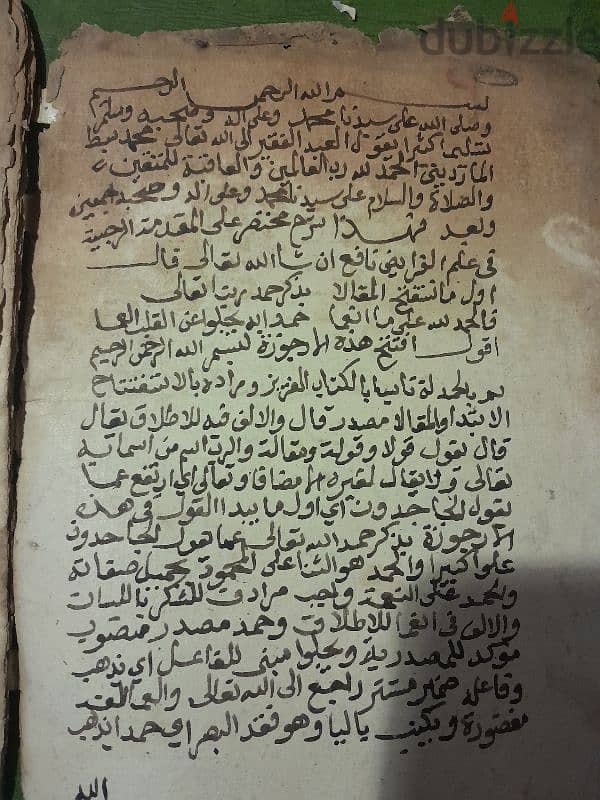 dubizzle
بسم الله الرحمن الرحيم
وصلى الله على سيدنا محمد وعلى اله وصحبه وسلم
تسليما كثيرا يقول العبد الفقير الى الله تعالى محمد سبط
الماردينى الحمد لله رب العالمين والعاقبة للمتقين
والصلاة والسلام على سيدنا محمد وعلى اله وصحبه اجمعين
وبعد فهذا شرح مختصر على المقدمة الرحبية
فى علم الفرايض نافع ان شا الله تعالى قال
اول ما نستفتح المقالا بذكر حمد ربنا تعالى
فالحمد لله على ما انعما حمدا به يجلوا عن القلب العما
اقول افتتح هذه الارجوزة ببسم الله الرحمن الرحيم
ثم بالحمدلة تاسيا بالكتاب العزيز ومراده بالاستفتاح
الابتدا والمقالا مصدر قال والالف فيه للاطلاق يقال
قال يقول قولا وقولة ومقالة والرب اسم من اسمائه
تعالى ولا يقال لغيره الا مضافا وتعالى اي ارتفع عما
يقول الجاحدون اي اول ما يبدا القول فى هذه
الارجوزة بذكر حمد الله تعالى عما يقول الجاحدون
علوا كبيرا والحمد هو الثنا على المحمود بجميل صفاته
والحمد على النعمة واجب مرادف للشكر باللسان
والالف فى انعما للاطلاق وحمدا مصدر منصوب
مؤكد للمصدرية ويجلوا مبنى للفاعل اي يذهب
وفاعله ضمير مستتر راجع الى الله تعالى والعما
مقصورة ويكتب باليا وهو فقد البصر اي حمدا يذهب
الله